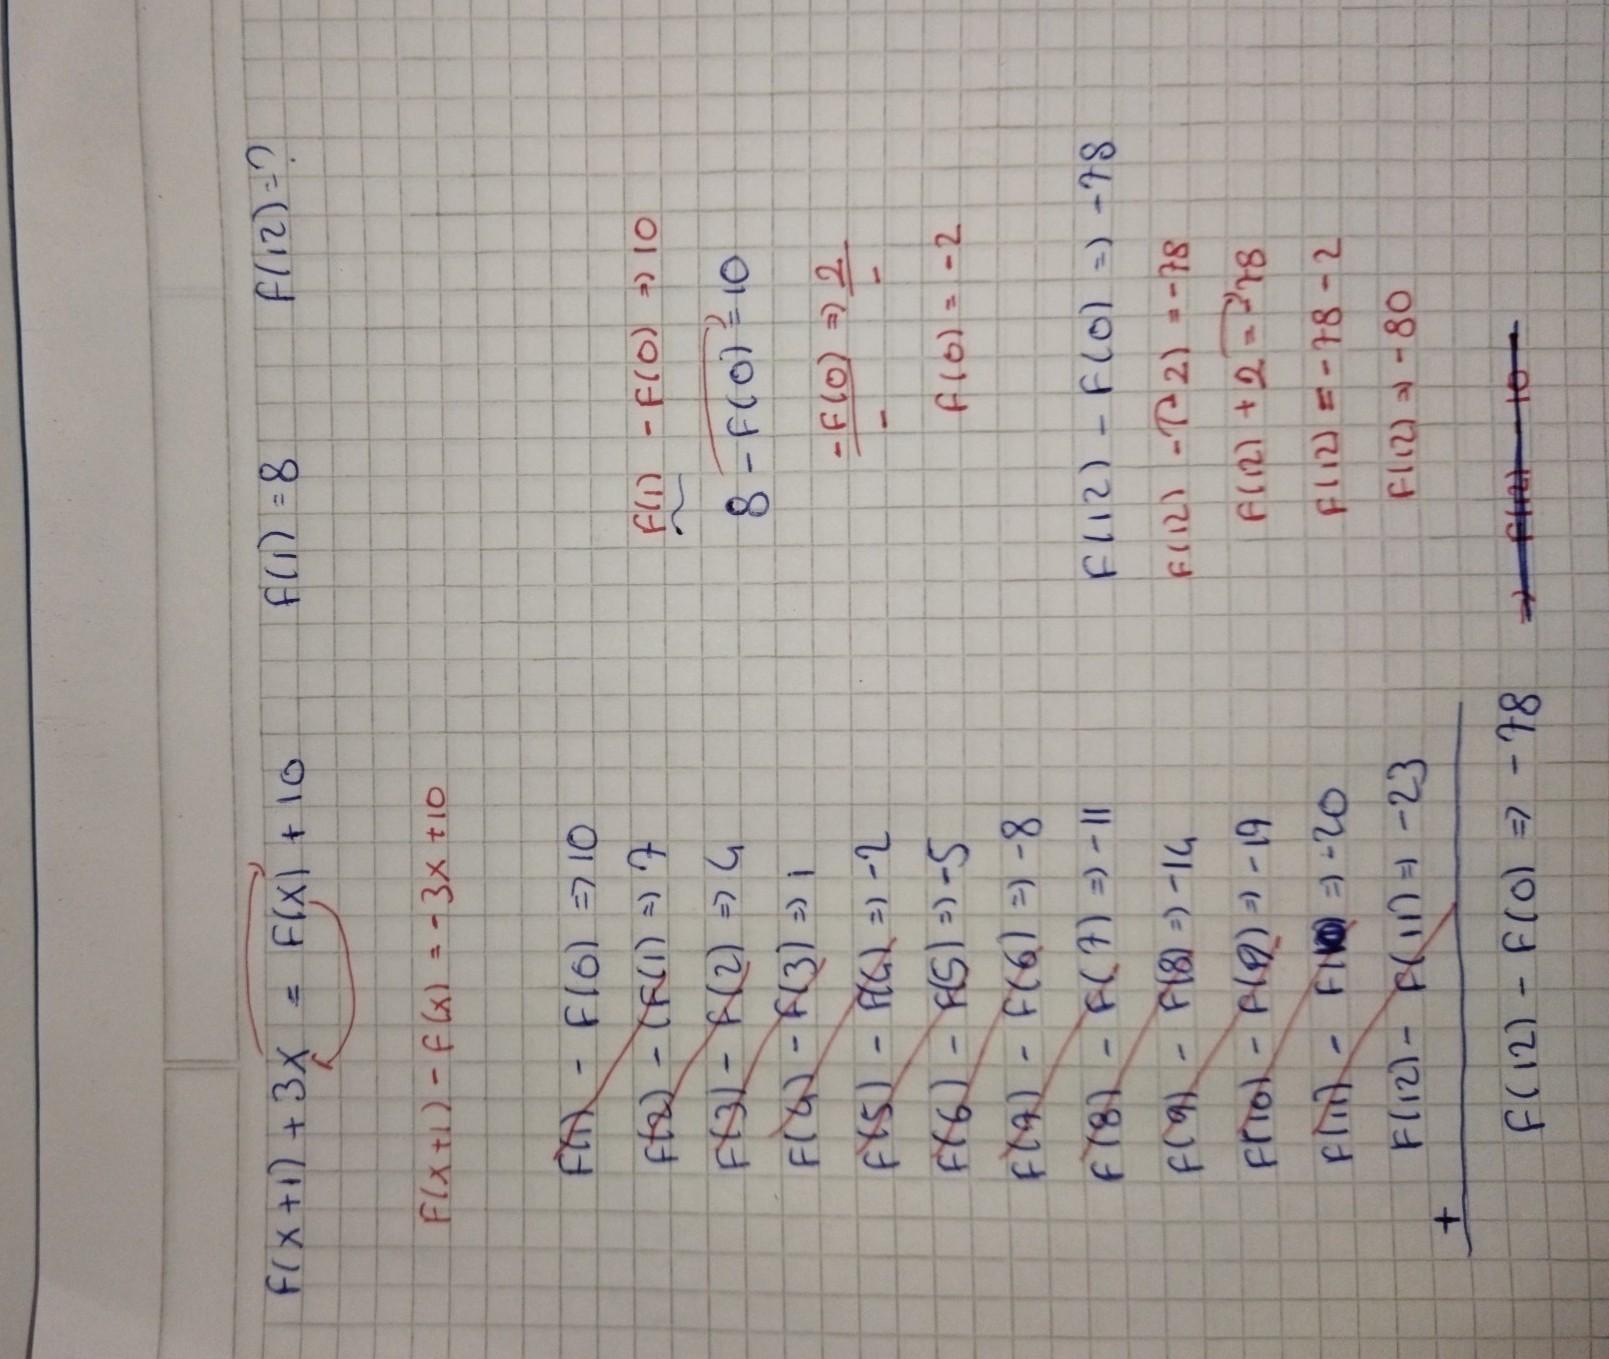 f(x+1) + 3x = f(x) + 10 f(1) = 8 f(12) = ?
f(x+1) - f(x) = -3x + 10
f(1) - f(0) => 10
f(2) - f(1) => 7
f(3) - f(2) => 4
f(4) - f(3) => 1
f(5) - f(4) => -2
f(6) - f(5) => -5
f(7) - f(6) => -8
f(8) - f(7) => -11
f(9) - f(8) => -14
f(10) - f(9) => -19
f(11) - f(10) => -20
f(12) - f(11) => -23
+
f(12) - f(0) => -78
f(1) - f(0) => 10
8 - f(0) = 10
-f(0) => 2
- -
f(0) = -2
f(12) - f(0) => -78
f(12) - (-2) = -78
f(12) + 2 = -78
f(12) = -78 - 2
f(12) => -80